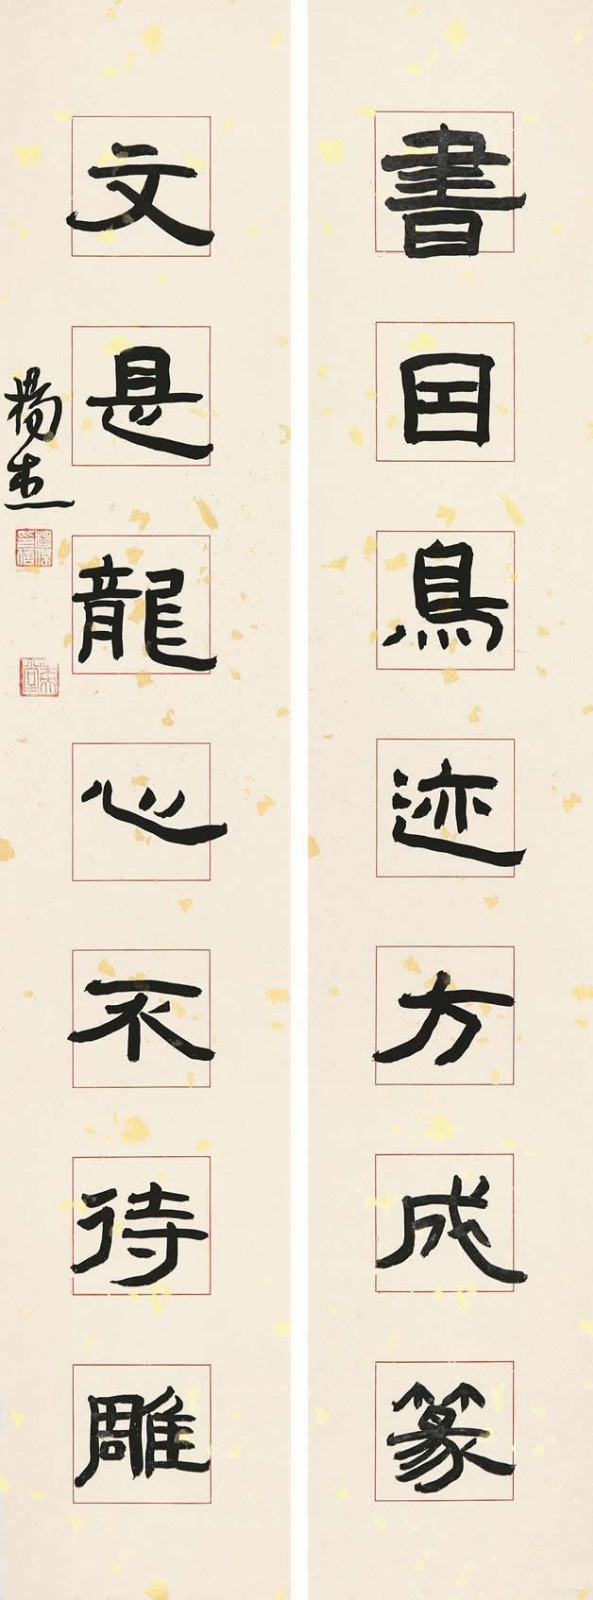 書因鳥迹方成篆
文是龍心不待雕
楊杰